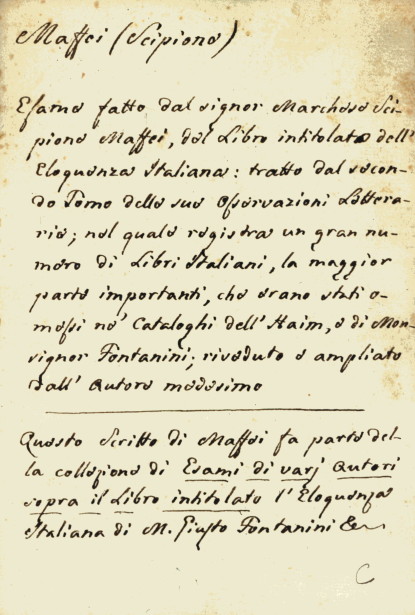 Maffei (Scipione)
Esame fatto dal signor Marchese Sci-
pione Maffei, del Libro intitolato dell'
Eloquenza Italiana: tratto dal secon-
do Tomo delle sue Osservazioni Lettera-
rie; nel quale registra un gran nu-
mero di Libri Italiani, la maggior
parte importanti, che erano stati o-
messi ne' Cataloghi dell'Haim, e di Mon-
signor Fontanini; riveduto e ampliato
dall' Autore medesimo
Questo Scritto di Maffei fa parte del-
la collezione di Esami di varj Autori
sopra il Libro intitolato l'Eloquenza
Italiana di M. Giusto Fontanini &c
C